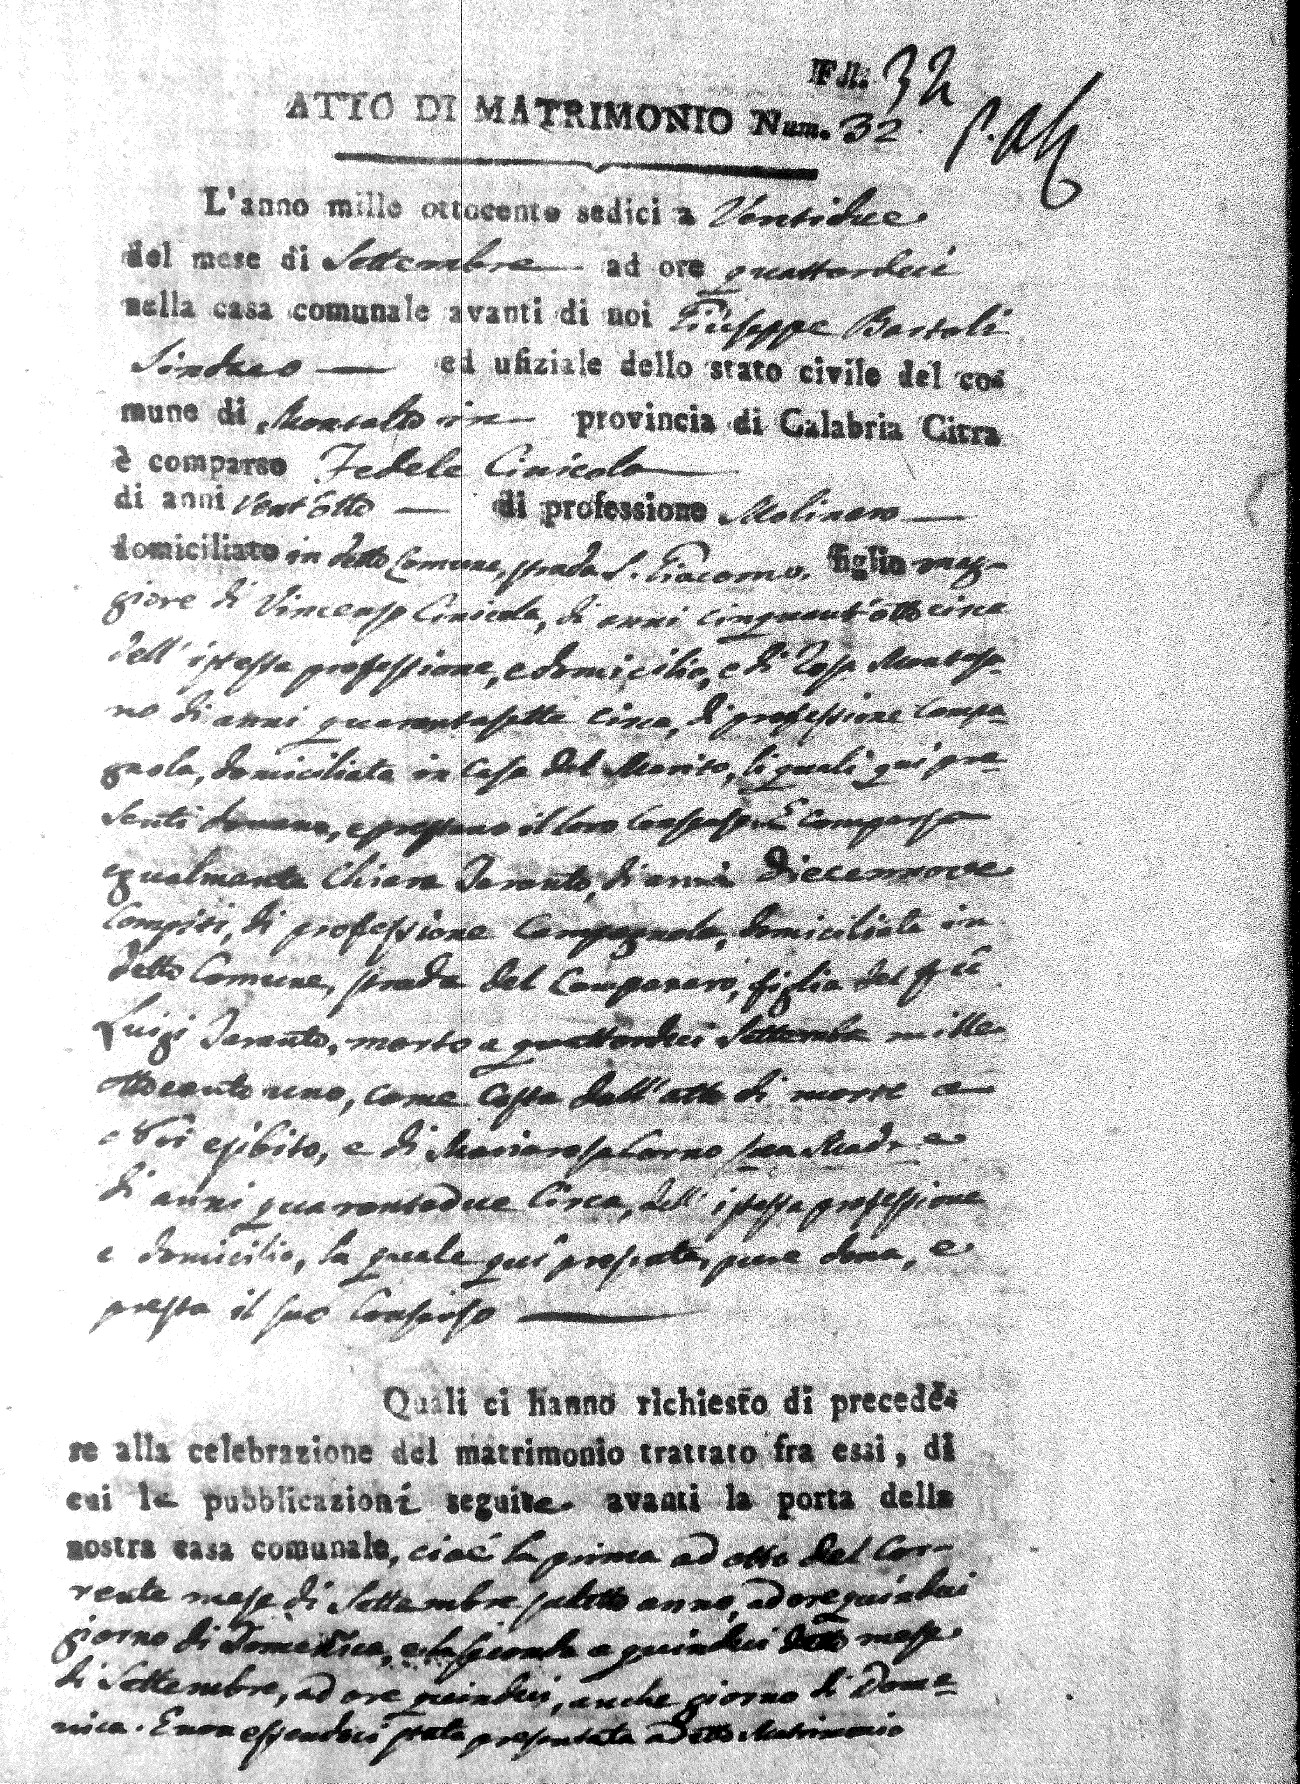 Fol. 32
ATTO DI MATRIMONIO Num. 32
L'anno mille ottocento sedici a Ventidue
del mese di Settembre ad ore quattordeci
nella casa comunale avanti di noi Giuseppe Bartoli
Sindaco ed ufiziale dello stato civile del co-
mune di Montalto in provincia di Calabria Citra
è comparso Fedele Cinicola
di anni vent'otto di professione Molinaro
domiciliato in detto Comune, strada S. Giacomo, figlio mag-
giore di Vincenzo Cinicola, di anni cinquant'otto circa
dell'istessa professione, e domicilio, e di Rosa
no di anni quarantasette circa, di professione Campa-
gnola, domiciliata in casa del Marito, li quali qui pre-
senti danno, e prestano il loro Consenso. E comparsa
egualmente Chiara Taranto, di anni diecennove
compiti, di professione Campagnola, domiciliata in
detto Comune, strada del Campanaro, figlia del fù
Luigi Taranto, morto a quattordeci Settembre mille
ottocento uno, come costa dall'atto di morte a
Noi esibito, e di Mariarosa Corno sua Madre
di anni quarantadue circa, dell'istessa professione
e domicilio, la quale qui presente, pure dona, e
presta il suo Consenso
Quali ci hanno richiesto di precede-
re alla celebrazione del matrimonio trattato fra essi, di
cui le pubblicazioni seguite avanti la porta della
nostra casa comunale, cioè la prima ad otto del Cor-
rente mese di Settembre sudetto anno, ad ore quindeci
giorno di Domenica, e la seconda a quindeci detto mese
di Settembre, ad ore quindeci, anche giorno di Dome-
nica. E non essendoci stata presentata a detto Matrimonio